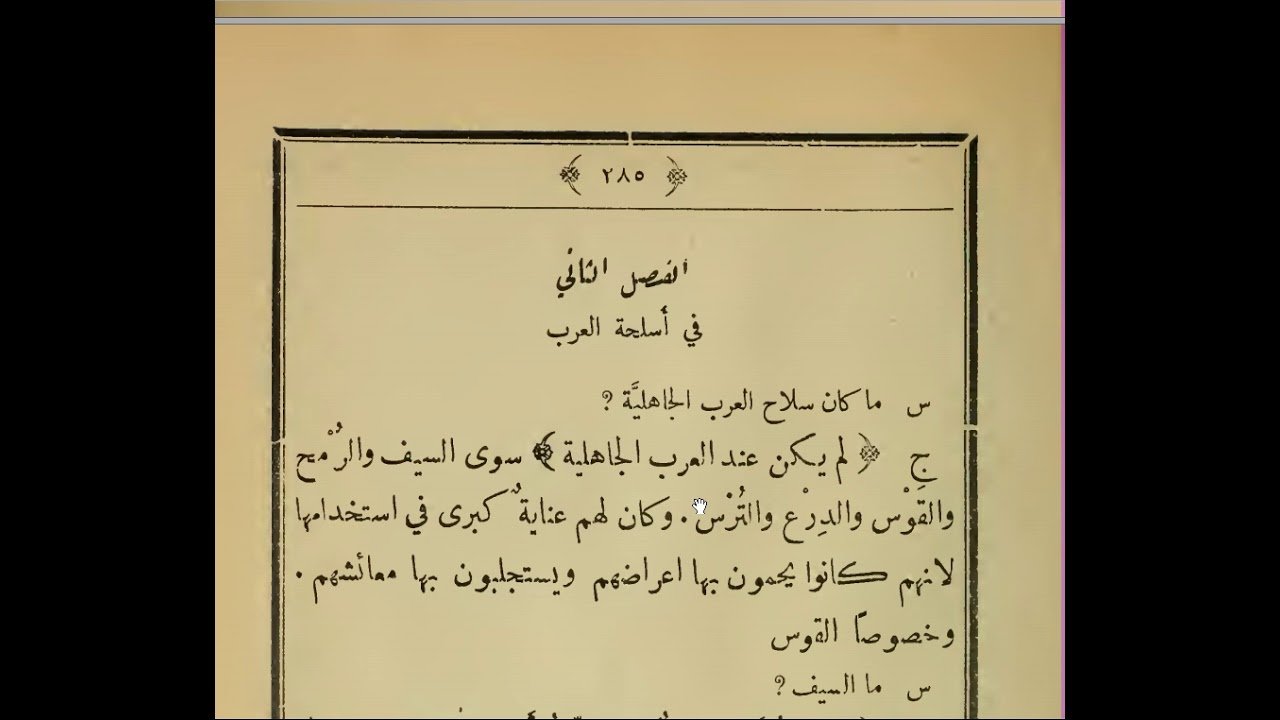 ٢٨٥
الفصل الثاني
في أسلحة العرب
س ما كان سلاح العرب الجاهليَّة ?
ج ﴿ لم يكن عند العرب الجاهلية ﴾ سوى السيف والرُمْح
والقَوْس والدِرْع والتُرْس . وكان لهم عنايةٌ كبرى في استخدامها
لانهم كانوا يحمون بها اعراضهم ويستجلبون بها معائشهم .
وخصوصًا القوس
س ما السيف ?